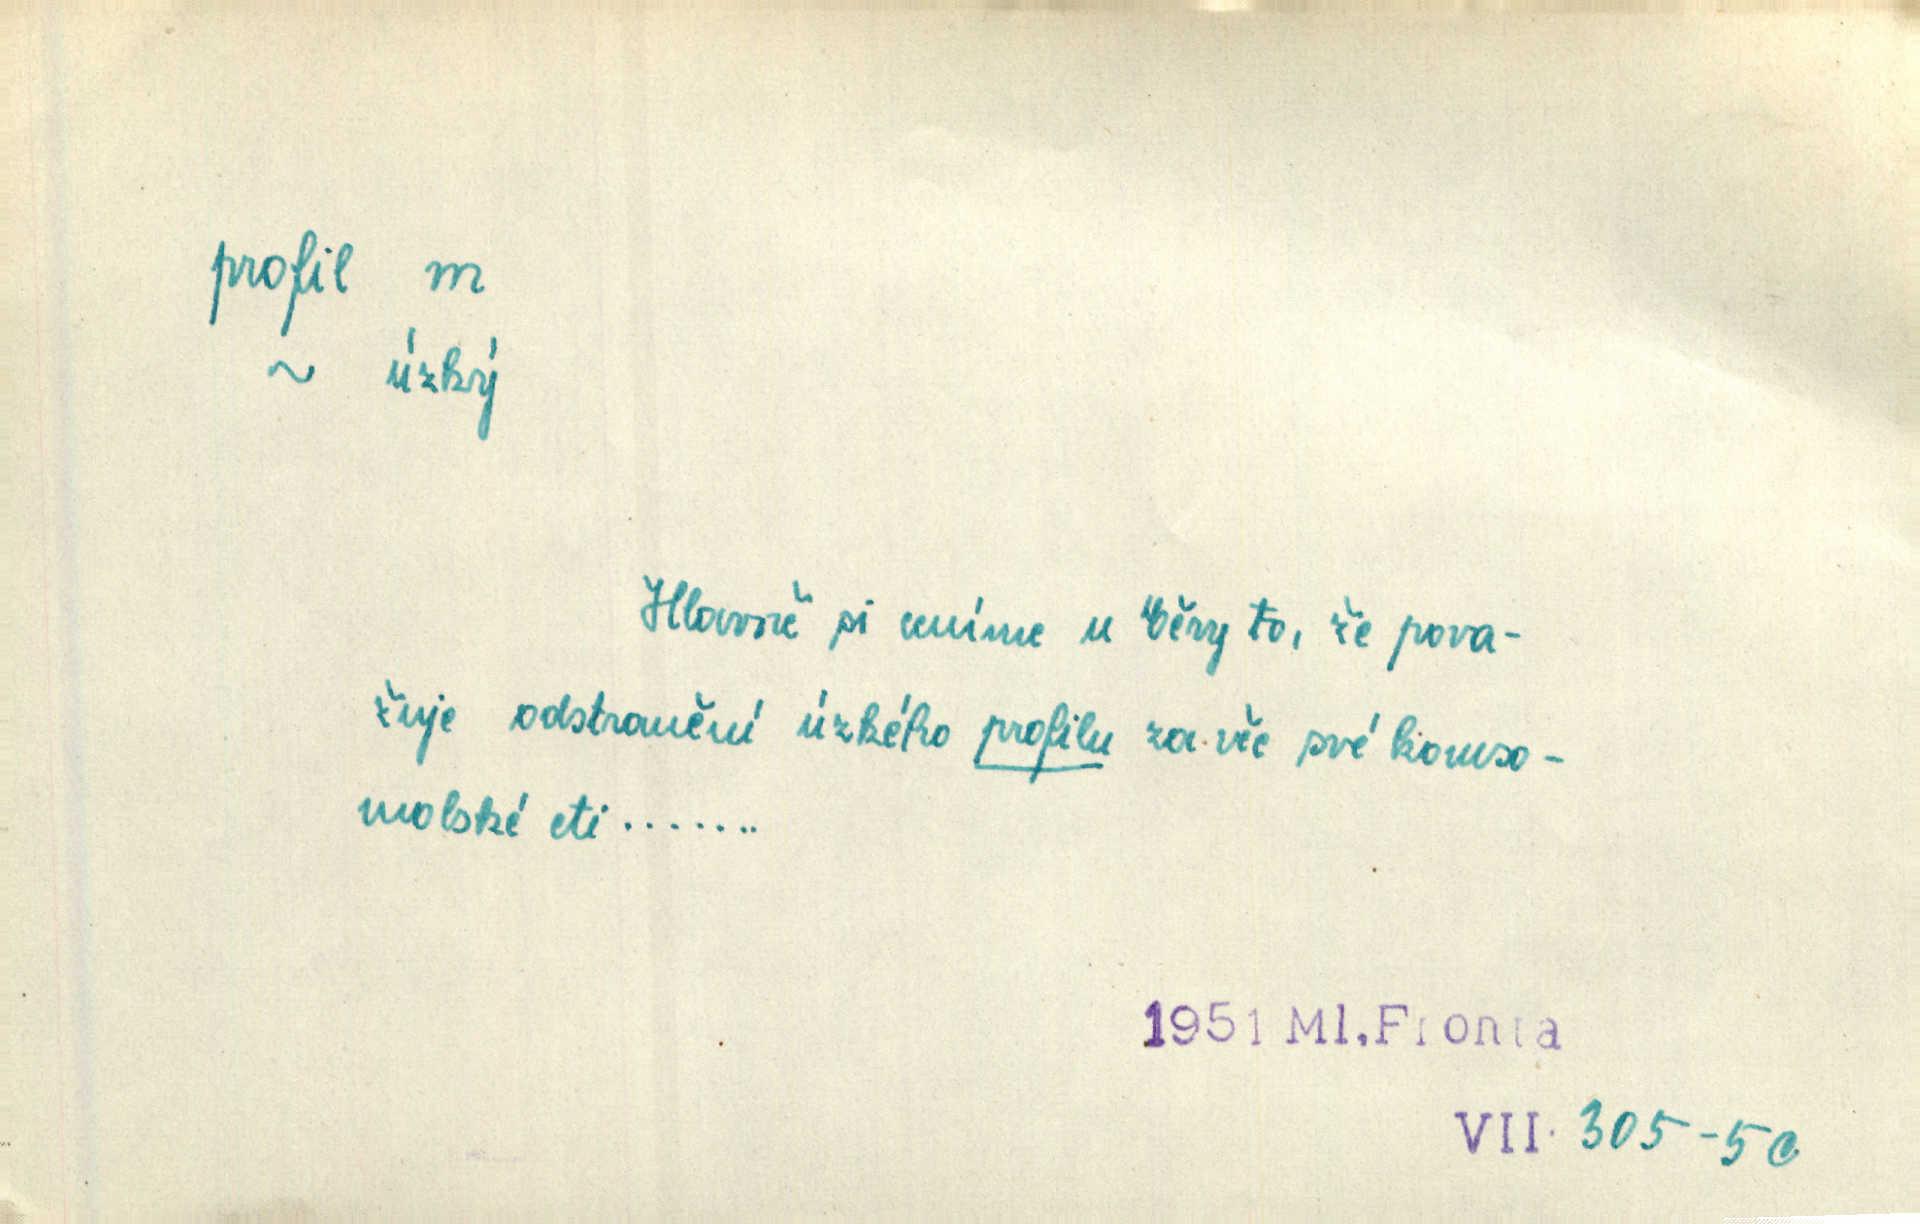 profil m
~ úzký
Hlavně si ceníme u Věry to, že pova-
žuje odstranění úzkého profilu za věc své komso-
molské cti.......
1951 Ml.Fronta
VII. 305-5c